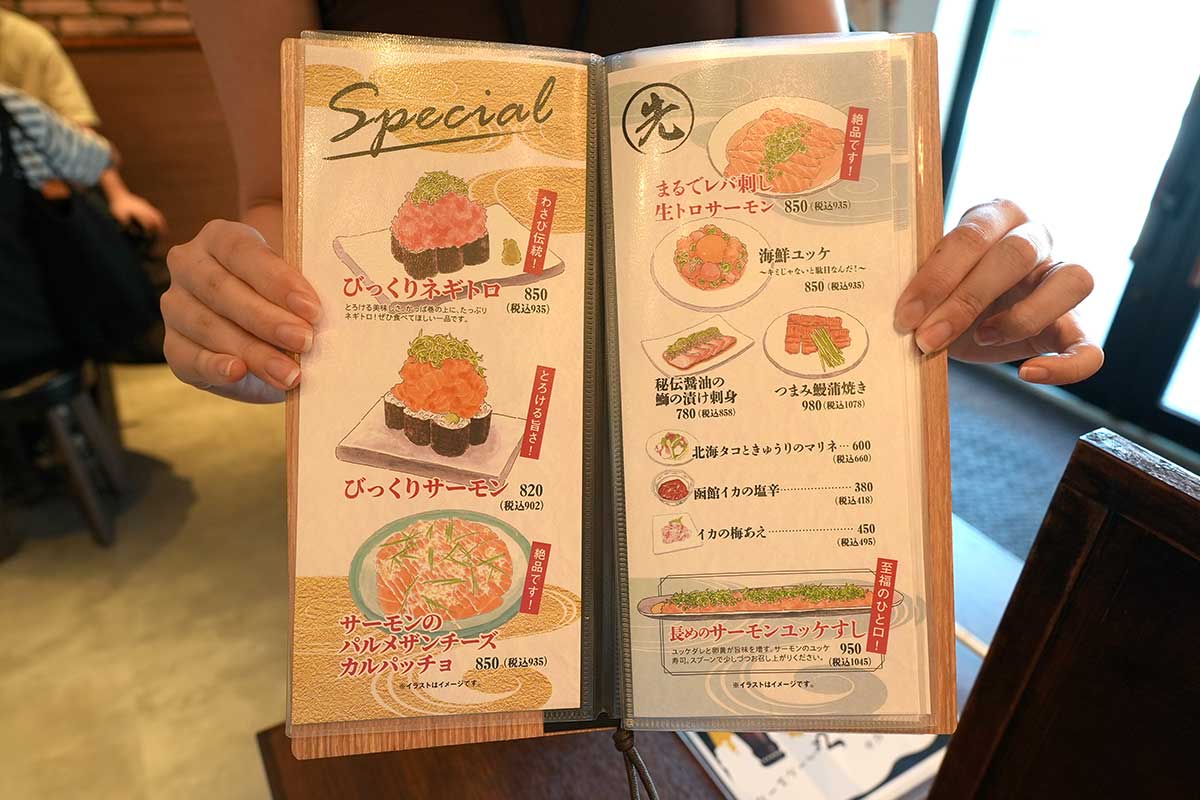 Special
わさび伝統!
びっくりネギトロ 850
(税込935)
とろける美味しさ!かっぱ巻の上に、たっぷり
ネギトロ!ぜひ食べてほしい一品です。
とろける旨さ!
びっくりサーモン 820
(税込902)
絶品です!
サーモンの
パルメザンチーズ
カルパッチョ 850 (税込935)
※イラストはイメージです。
先
絶品です!
まるでレバ刺し
生トロサーモン 850 (税込935)
海鮮ユッケ
〜キミじゃないと駄目なんだ!〜
850 (税込935)
秘伝醤油の
鰤の漬け刺身
780 (税込858)
つまみ鰻蒲焼き
980 (税込1078)
北海タコときゅうりのマリネ… 600
(税込660)
函館イカの塩辛……………… 380
(税込418)
イカの梅あえ………………… 450
(税込495)
至福のひと口!
長めのサーモンユッケすし
ユッケダレと卵黄が旨味を増す。サーモンのユッケ 950
寿司、スプーンで少しづつお召し上がりください。 (税込1045)
※イラストはイメージです。